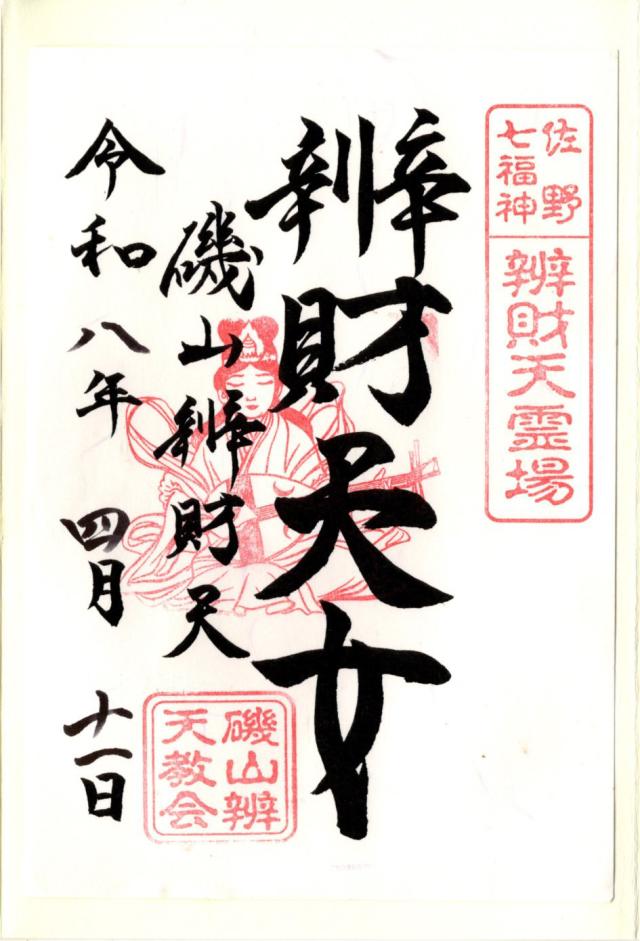 佐野
七福神
辨財天霊場
辨財天女
磯山辨財天
磯山辨
天教会
令和八年 四月 十一日